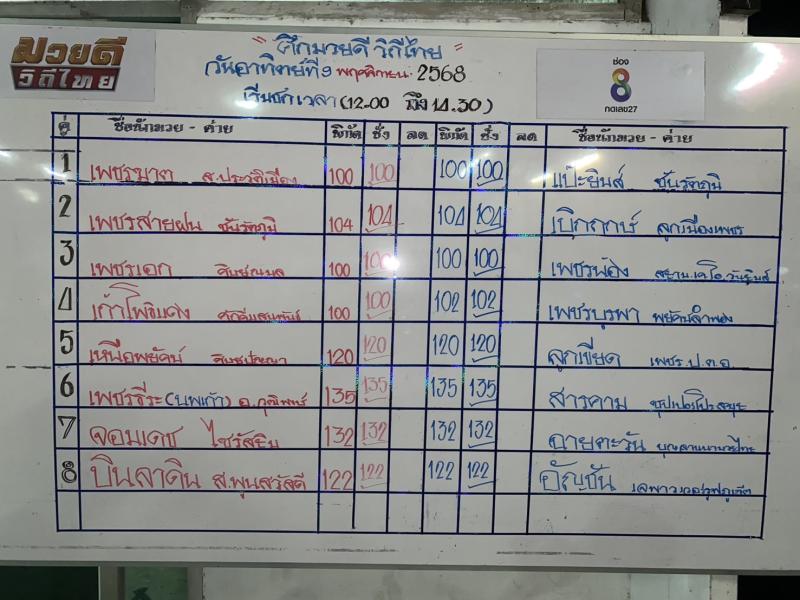 มวยดี
วิถีไทย
" ศึกมวยดี วิถีไทย "
วันอาทิตย์ที่ 9 พฤศจิกายน 2568
เริ่มชกเวลา (12.00 ถึง 14.30)
ช่อง
8
กดเลข27
คู่ ชื่อนักมวย - ค่าย พิกัด ชั่ง ลด พิกัด ชั่ง ลด ชื่อนักมวย - ค่าย
1 เพชรฆาต ส.ประวัติเมือง 100 100 100 100 แป๊ะยิ้นส์ ชันรัตภูมิ
2 เพชรสายฝน ชันรัตภูมิ 104 104 104 104 เบิกฤกษ์ ลูกเมืองเพชร
3 เพชรเอก 100 100 100 100 เพชรพ้อง
4 เก้าโพธิ์แดง 100 100 102 102 เพชรบูรพา พยัคฆ์ลำพอง
5 เหนือพยัคฆ์ 120 120 120 120 ลูกเขียด เพชร.ป.ต.อ.
6 เพชรธีระ (นพเก้า) อ.วุฒิพงษ์ 135 135 135 135 สารคาม
7 จอมเดช ไชรัสยิม 132 132 132 132 ฉายตะวัน
8 บินลาดิน ส.พูนสวัสดิ์ 122 122 122 122 อัญชัน